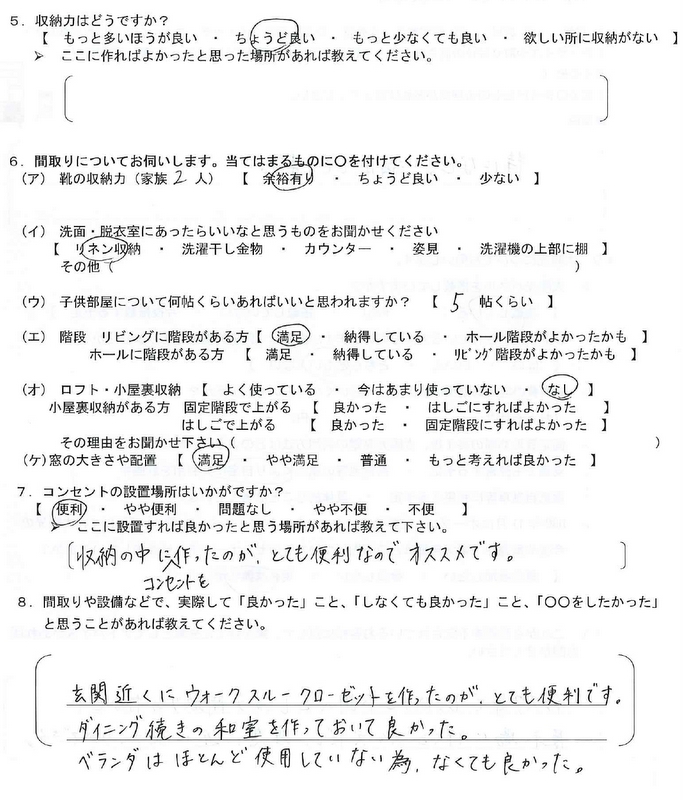 ５．収納力はどうですか？
【　もっと多いほうが良い　・　ちょうど良い　・　もっと少なくても良い　・　欲しい所に収納がない　】
➢　ここに作ればよかったと思った場所があれば教えてください。
６．間取りについてお伺いします。当てはまるものに〇を付けてください。
（ア）　靴の収納力（家族 2 人）　【　余裕有り　・　ちょうど良い　・　少ない　】
（イ）　洗面・脱衣室にあったらいいなと思うものをお聞かせください
【　リネン収納　・　洗濯干し金物　・　カウンター　・　姿見　・　洗濯機の上部に棚　】
その他（　　　　　）
（ウ）　子供部屋について何帖くらいあればいいと思われますか？　【　5　帖くらい　】
（エ）　階段　リビングに階段がある方【　満足　・　納得している　・　ホール階段がよかったかも　】
ホールに階段がある方　【　満足　・　納得している　・　ﾘﾋﾞﾝｸﾞ階段がよかったかも　】
（オ）　ロフト・小屋裏収納　【　よく使っている　・　今はあまり使っていない　・　なし　】
小屋裏収納がある方　固定階段で上がる　【　良かった　・　はしごにすればよかった　】
はしごで上がる　【　良かった　・　固定階段にすればよかった　】
その理由をお聞かせ下さい（　　　　　）
（ケ）窓の大きさや配置　【　満足　・　やや満足　・　普通　・　もっと考えれば良かった　】
７．コンセントの設置場所はいかがですか？
【　便利　・　やや便利　・　問題なし　・　やや不便　・　不便　】
➢　ここに設置すれば良かったと思う場所があれば教えて下さい。
収納の中に作ったのが、とても便利なのでオススメです。
コンセントを
８．間取りや設備などで、実際して「良かった」こと、「しなくても良かった」こと、「〇〇をしたかった」
と思うことがあれば教えてください。
玄関近くにウォークスルークローゼットを作ったのが、とても便利です。
ダイニング続きの和室を作っておいて良かった。
ベランダはほとんど使用していない為、なくても良かった。